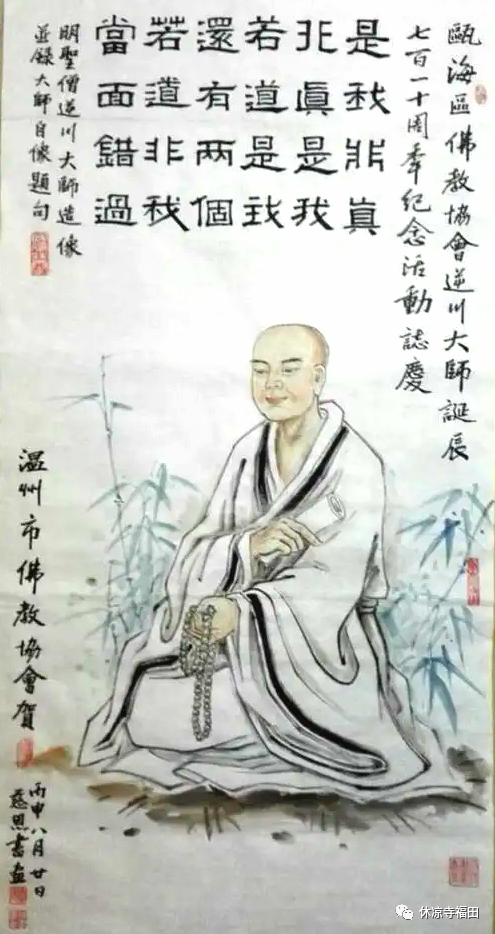 甌海區佛教協會逆川大師誕辰
七百一十周年紀念活動誌慶
是我非眞
非眞是我
若道是我
還有两個
若道非我
當面錯過
明聖僧逆川大師造像
並錄大師自像題句
温州市佛教協會賀
丙申八月廿日
慈恩書畫
休凉寺福田